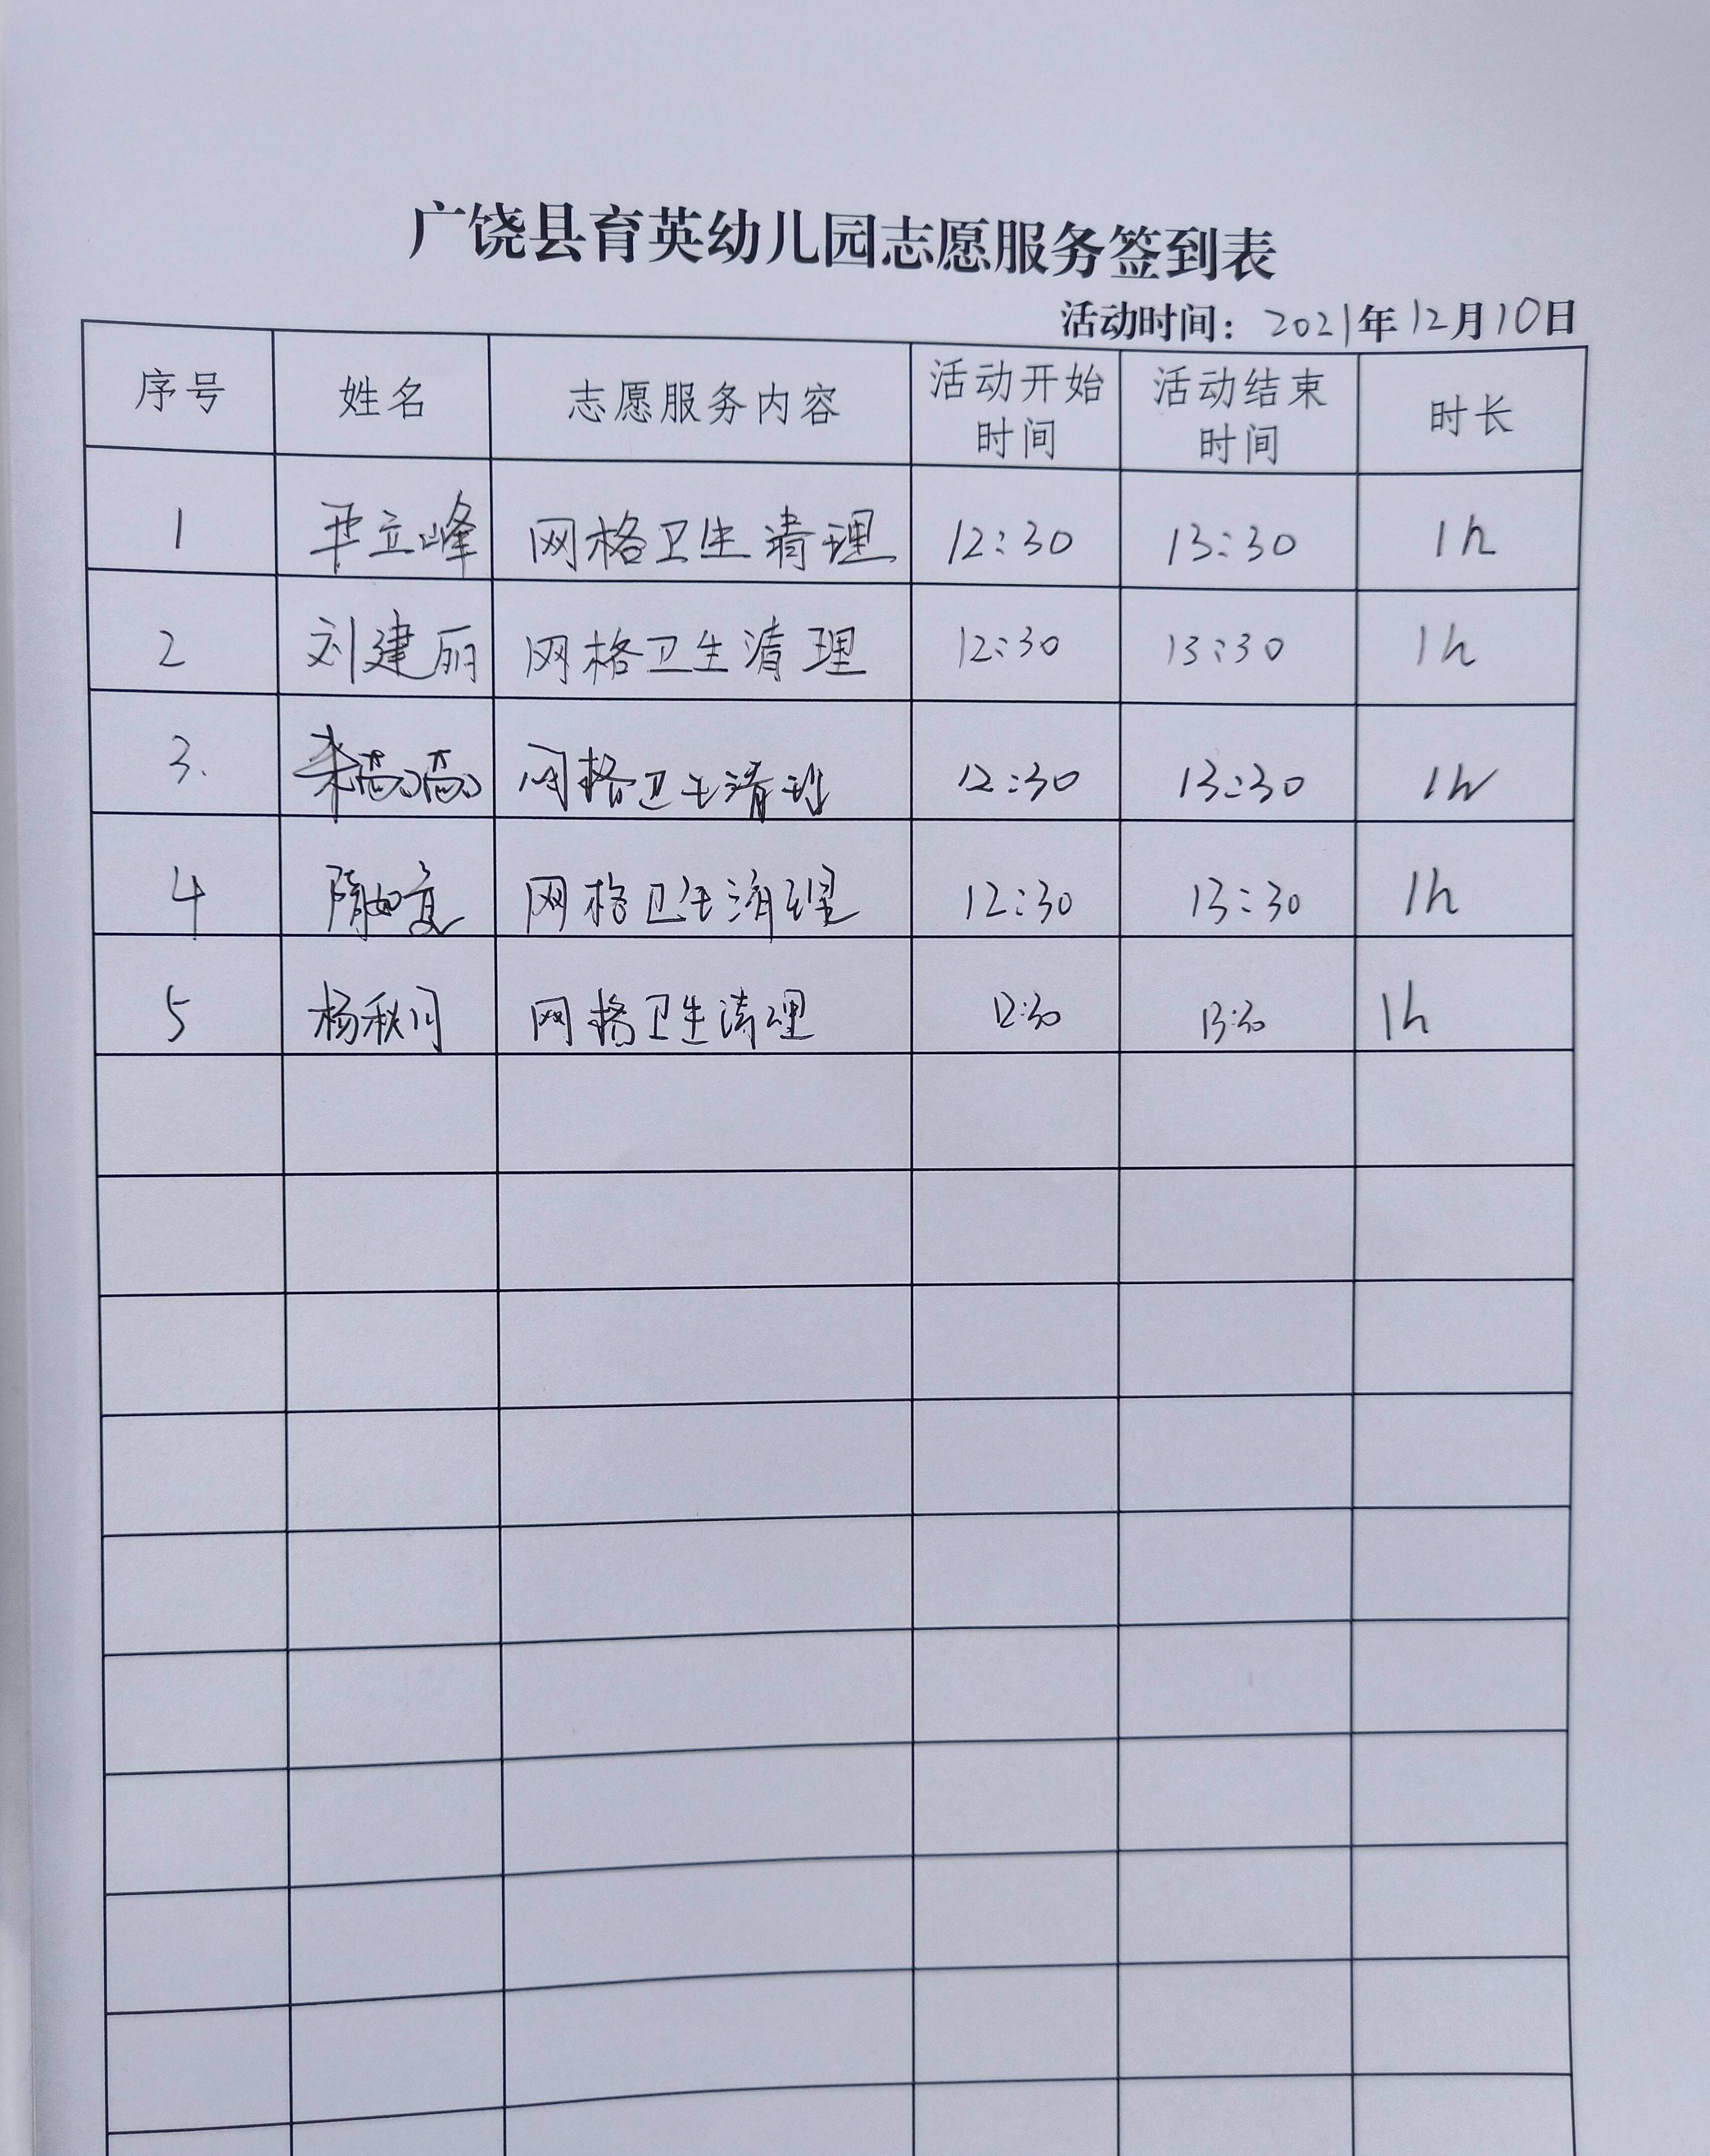 广饶县育英幼儿园志愿服务签到表
活动时间：2021年12月10日
序号 姓名 志愿服务内容 活动开始时间 活动结束时间 时长
1 立峰 网格卫生清理 12:30 13:30 1h
2 刘建丽 网格卫生清理 12:30 13:30 1h
3. 网格卫生清理 12:30 13:30 1h
4 隋 网格卫生清理 12:30 13:30 1h
5 杨秋月 网格卫生清理 12:30 13:30 1h